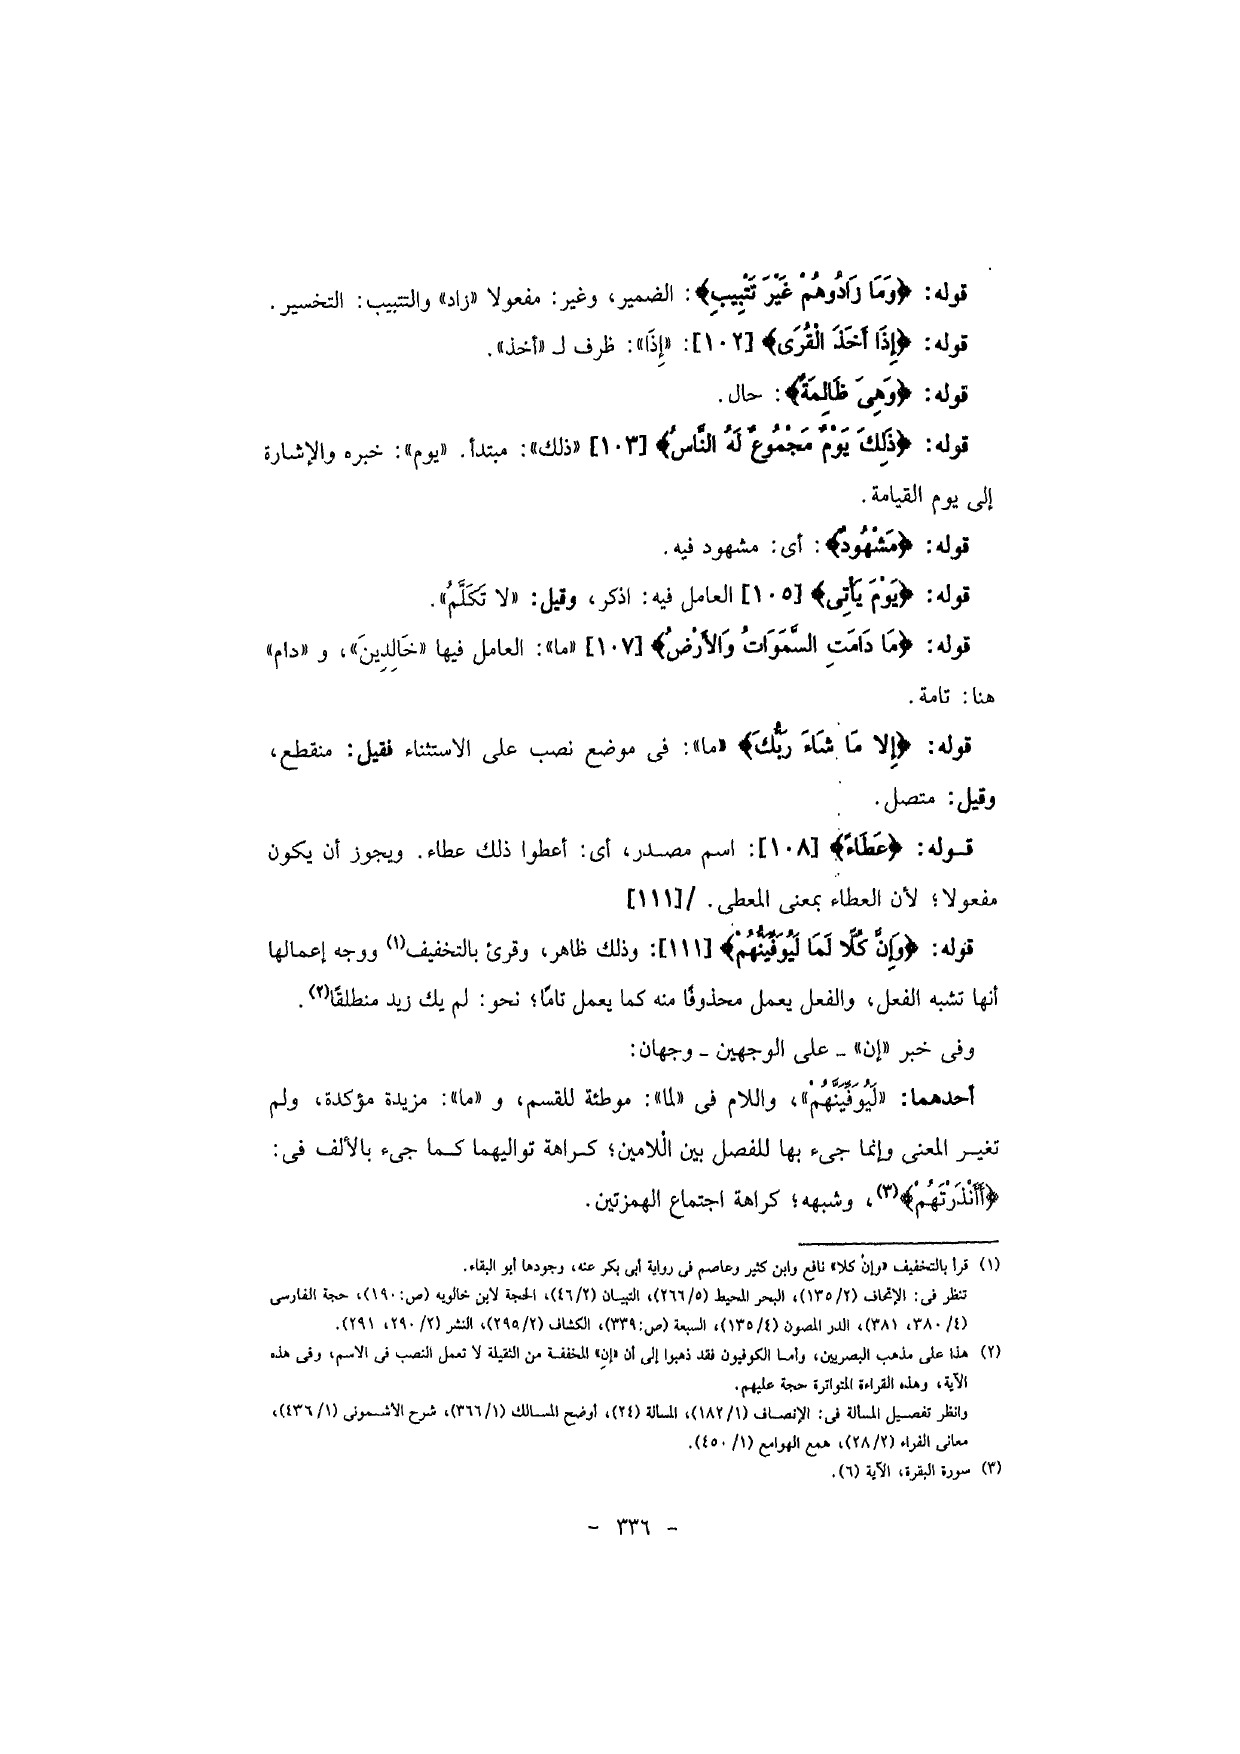 قوله: ﴿وَمَا زَادُوهُمْ غَيْرَ تَتْبِيبٍ﴾: الضمير، وغير: مفعولا «زاد» والتتبيب: التخسير.
قوله: ﴿إِذَا أَخَذَ الْقُرَى﴾ [١٠٢]: «إِذَا»: ظرف لـ «أخذ».
قوله: ﴿وَهِىَ ظَالِمَةٌ﴾: حال.
قوله: ﴿ذَلِكَ يَوْمٌ مَجْمُوعٌ لَهُ النَّاسُ﴾ [١٠٣] «ذلك»: مبتدأ. «يوم»: خبره والإشارة
إلى يوم القيامة.
قوله: ﴿مَشْهُودٌ﴾: أى: مشهود فيه.
قوله: ﴿يَوْمَ يَأْتِى﴾ [١٠٥] العامل فيه: اذكر، وقيل: «لا تَكَلَّمُ».
قوله: ﴿مَا دَامَتِ السَّمَوَاتُ وَالأَرْضُ﴾ [١٠٧] «ما»: العامل فيها «خَالِدِينَ»، و «دام»
هنا: تامة.
قوله: ﴿إِلا مَا شَاءَ رَبُّكَ﴾ «ما»: فى موضع نصب على الاستثناء فقيل: منقطع،
وقيل: متصل.
قوله: ﴿عَطَاءً﴾ [١٠٨]: اسم مصدر، أى: أعطوا ذلك عطاء. ويجوز أن يكون
مفعولا؛ لأن العطاء بمعنى المعطى. /[١١١]
قوله: ﴿وَإِنَّ كُلًّا لَمَا لَيُوَفِّيَنَّهُمْ﴾ [١١١]: وذلك ظاهر، وقرئ بالتخفيف(١) ووجه إعمالها
أنها تشبه الفعل، والفعل يعمل محذوفًا منه كما يعمل تامًا؛ نحو: لم يك زيد منطلقًا(٢).
وفى خبر «إن» ـ على الوجهين ـ وجهان:
أحدهما: «لَيُوَفِّيَنَّهُمْ»، واللام فى «لما»: موطئة للقسم، و «ما»: مزيدة مؤكدة، ولم
تغير المعنى وإنما جىء بها للفصل بين الْلامين؛ كراهة تواليهما كما جىء بالألف فى:
﴿أَأَنْذَرْتَهُمْ﴾(٣)، وشبهه؛ كراهة اجتماع الهمزتين.
(١) قرأ بالتخفيف «وإنْ كلا» نافع وابن كثير وعاصم فى رواية أبى بكر عنه، وجودها أبو البقاء.
تنظر فى: الإتحاف (١٣٥/٢)، البحر المحيط (٢٦٦/٥)، التبيان (٤٦/٢)، الحجة لابن خالويه (ص:١٩٠)، حجة الفارسى
(٣٨٠/٤، ٣٨١)، الدر المصون (١٣٥/٤)، السبعة (ص:٣٣٩)، الكشاف (٢٩٥/٢)، النشر (٢٩٠/٢، ٢٩١).
(٢) هذا على مذهب البصريين، وأما الكوفيون فقد ذهبوا إلى أن «إن» المخففة من الثقيلة لا تعمل النصب فى الاسم، وفى هذه
الآية، وهذه القراءة المتواترة حجة عليهم.
وانظر تفصيل المسألة فى: الإنصاف (١٨٢/١)، المسألة (٢٤)، أوضح المسالك (٣٦٦/١)، شرح الأشمونى (٤٣٦/١)،
معانى الفراء (٢٨/٢)، همع الهوامع (٤٥٠/١).
(٣) سورة البقرة، الآية (٦).
- ٣٣٦ -